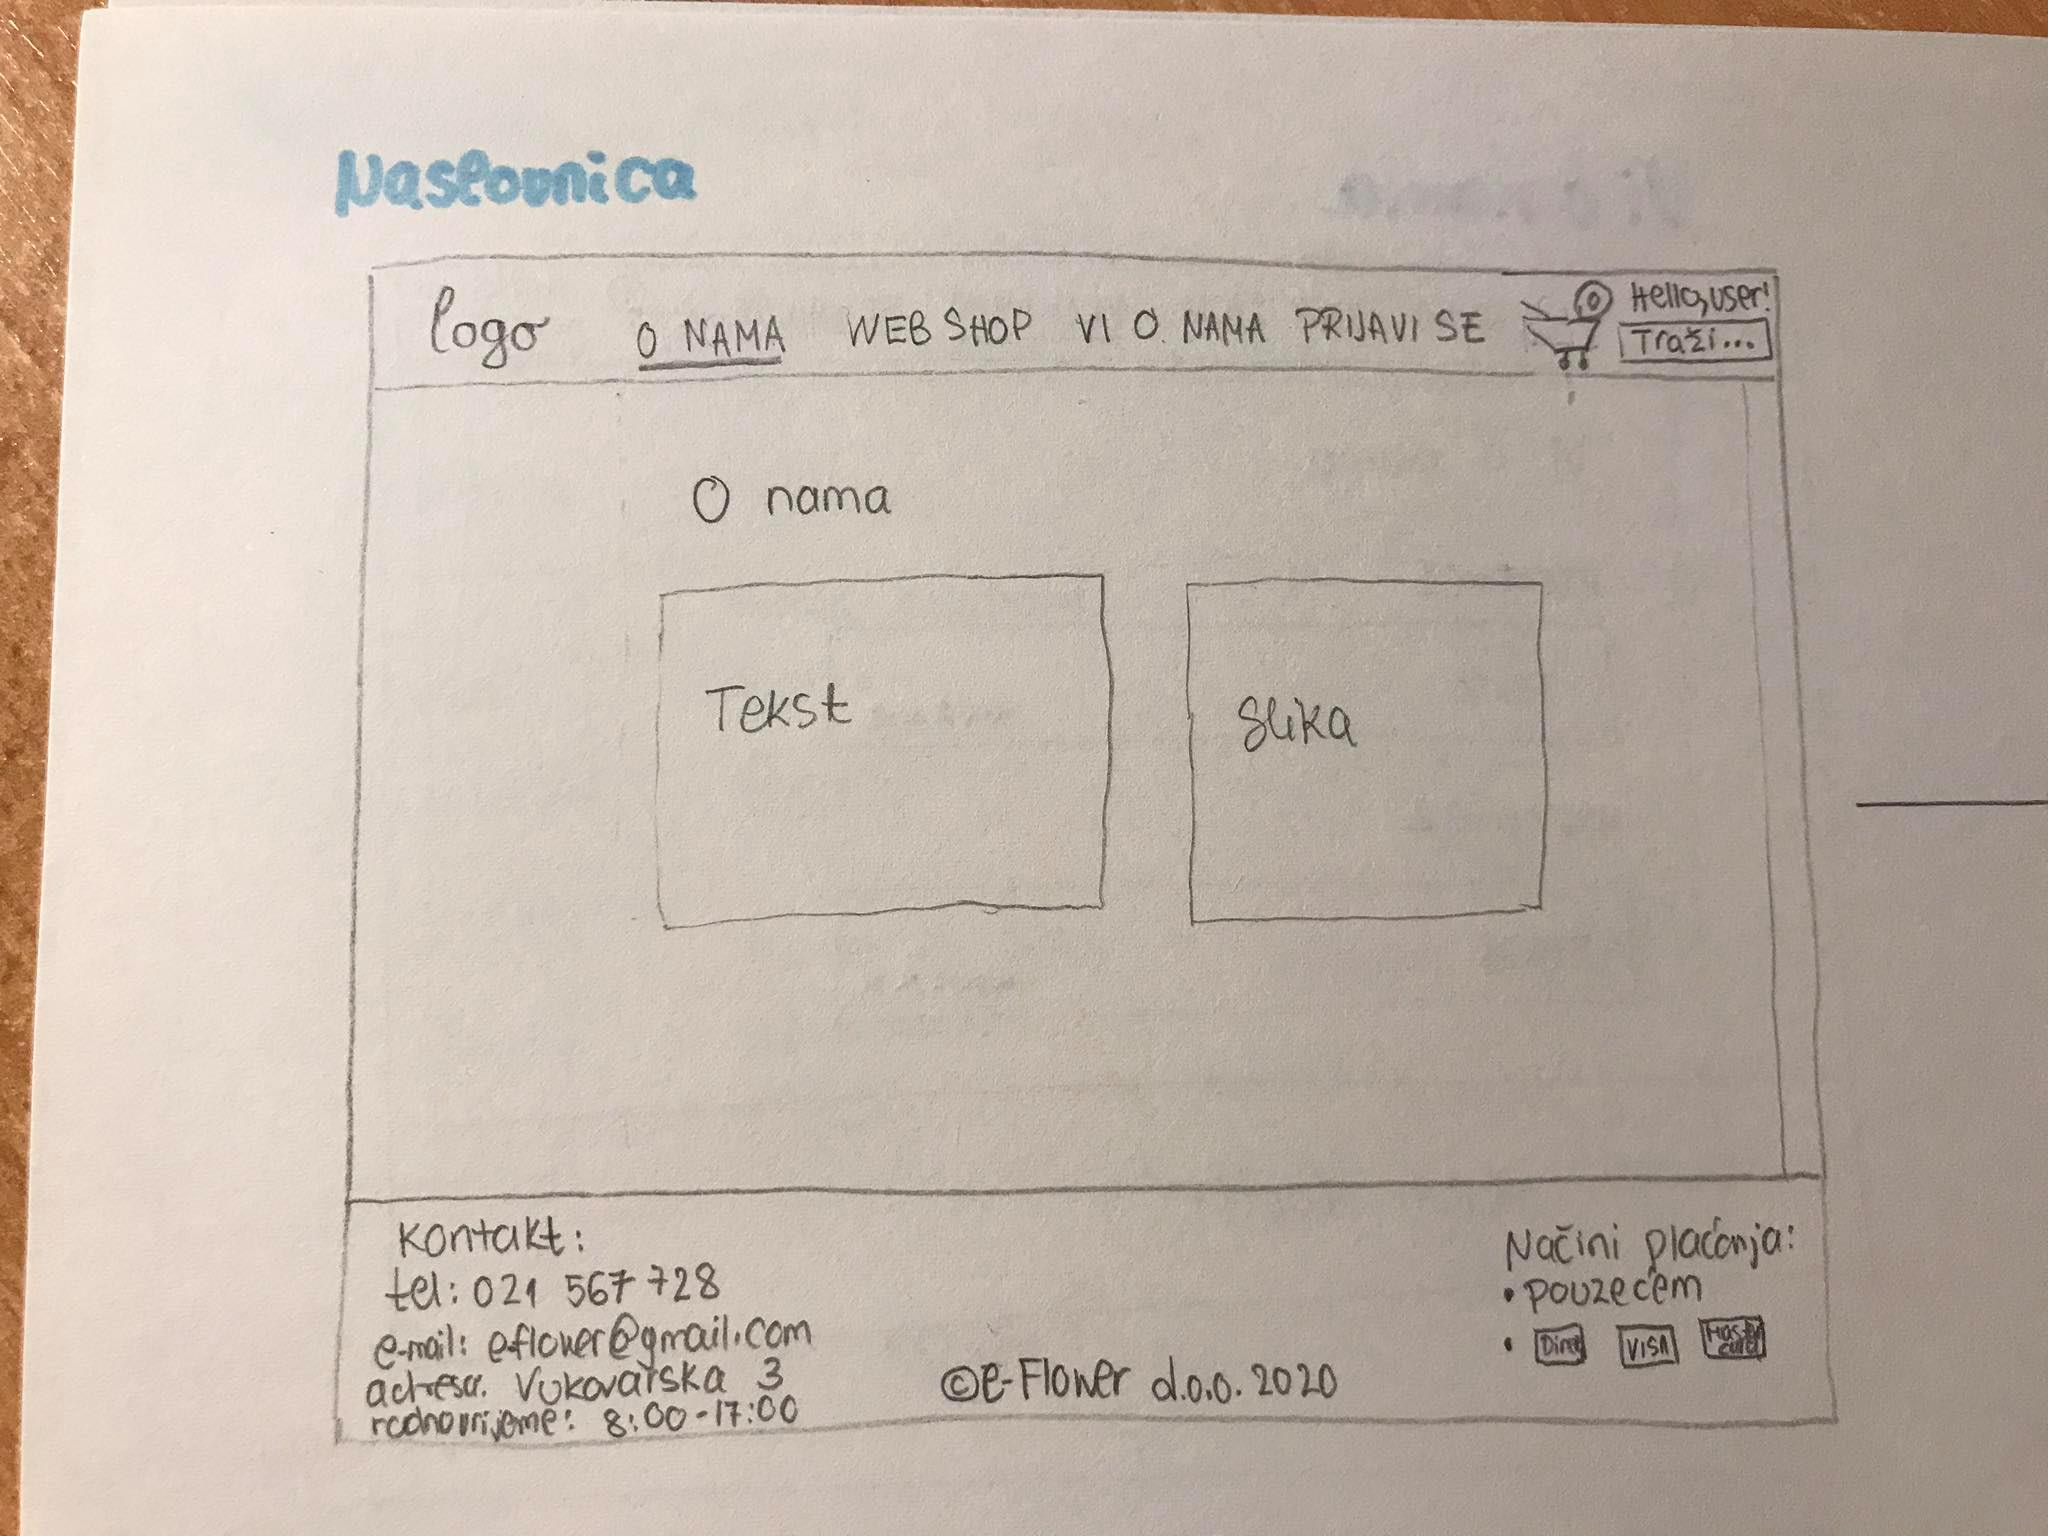 Naslovnica
logo O NAMA WEB SHOP VI O NAMA PRIJAVI SE 0 Hello, user!
Traži...
O nama
Tekst
Slika
Kontakt:
tel: 021 567 728
e-mail: eflower@gmail.com
adresa: Vukovarska 3
radnovrijeme: 8:00-17:00
©e-Flower d.o.o. 2020
Načini plaćanja:
• pouzećem
• Diners VISA Master card